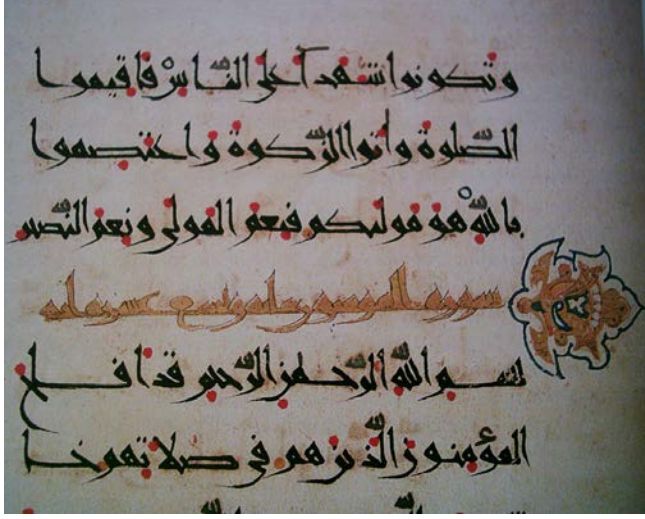 وتكونوا شهدآ على الناس فاقيموا
الصّلوة وآتوا الزّكوة واعتصموا
باللّه هو موليكم فنعم المولى ونعم النّصير
سورة المومنون مايه وتسع عشره ايه
بسم اللّه الرّحمن الرّحيم قد افلح
المؤمنون الّذين هم في صلاتهم خا